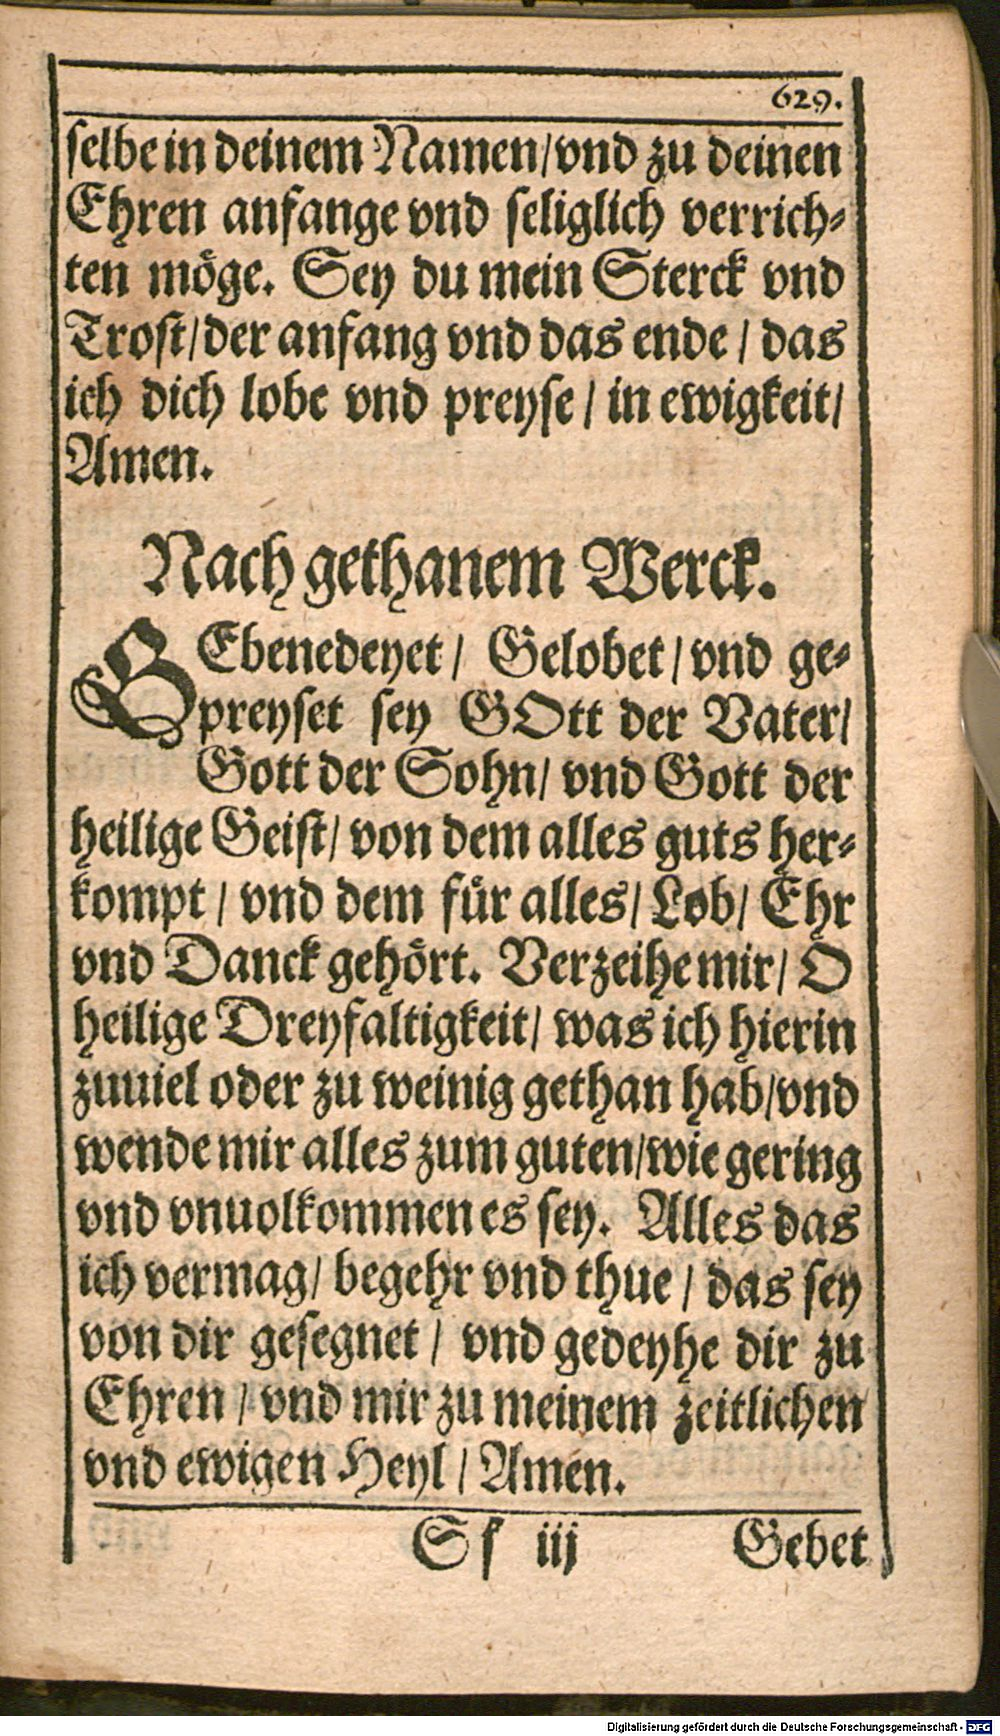 629.
selbe in deinem Namen/vnd zu deinen
Ehren anfange vnd seliglich verrich-
ten möge. Sey du mein Sterck vnd
Trost/der anfang vnd das ende / das
ich dich lobe vnd preyse / in ewigkeit/
Amen.
Nach gethanem Werck.
GEbenedeyet / Gelobet / vnd ge-
preyset sey GOtt der Vater/
Gott der Sohn/ vnd Gott der
heilige Geist/ von dem alles guts her-
kompt / vnd dem für alles/ Lob/ Ehr
vnd Danck gehört. Verzeihe mir/ O
heilige Dreyfaltigkeit/ was ich hierin
zuuiel oder zu weinig gethan hab/vnd
wende mir alles zum guten/wie gering
vnd vnuolkommen es sey. Alles das
ich vermag/ begehr vnd thue / das sey
von dir gesegnet / vnd gedeyhe dir zu
Ehren / vnd mir zu meinem zeitlichen
vnd ewigen Heyl / Amen.
Sf iij Gebet
Digitalisierung gefördert durch die Deutsche Forschungsgemeinschaft - DFG